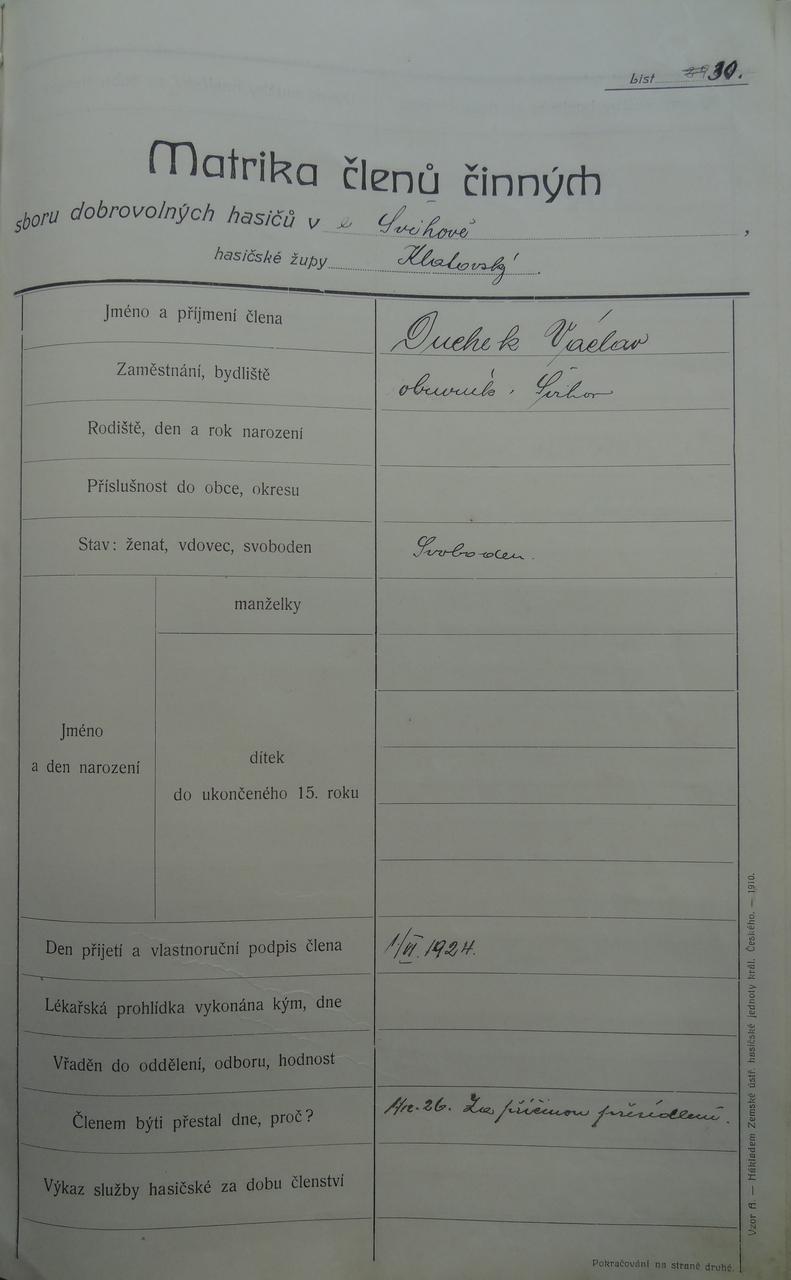 List 30.
Matrika členů činných
sboru dobrovolných hasičů v Švihově,
hasičské župy Klatovský.
Jméno a příjmení člena Duchek Václav
Zaměstnání, bydliště obuvník, Švihov
Rodiště, den a rok narození
Příslušnost do obce, okresu
Stav: ženat, vdovec, svoboden Svoboden.
manželky
Jméno
a den narození
dítek
do ukončeného 15. roku
Den přijetí a vlastnoruční podpis člena 1/VI. 1924.
Lékařská prohlídka vykonána kým, dne
Vřaděn do oddělení, odboru, hodnost
Členem býti přestal dne, proč? 26. Za příčinou přesídlení.
Výkaz služby hasičské za dobu členství
Pokračování na straně druhé.
Vzor A. — Nákladem Zemské ústř. hasičské jednoty král. Českého. — 1910.